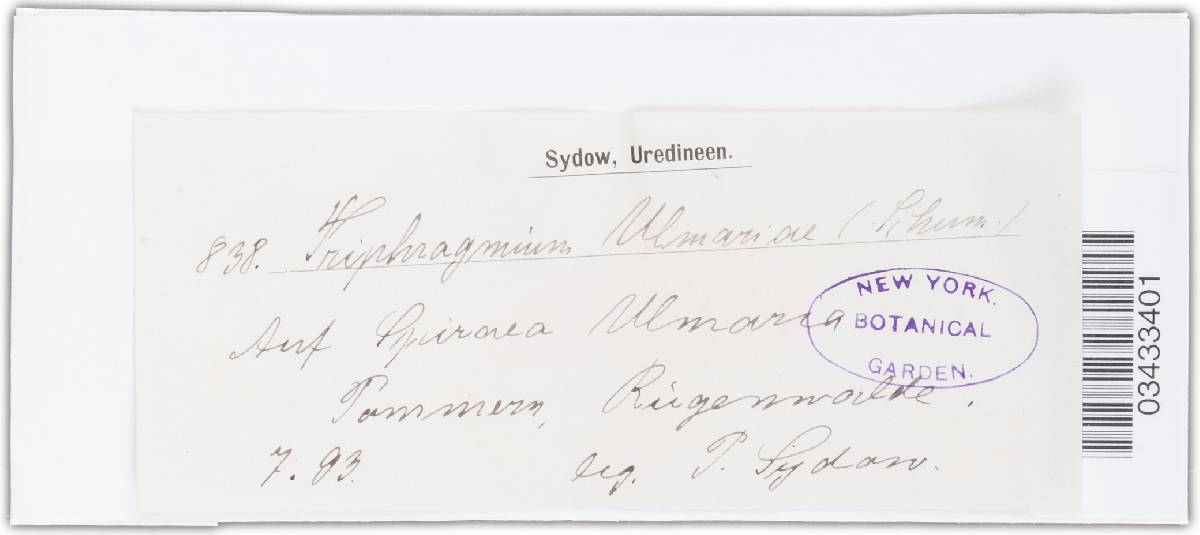 Sydow, Uredineen.
838. Triphragmium Ulmariae (Schum.)
Auf Spiraea Ulmaria
Pommern, Rügenwalde.
7. 93. leg. P. Sydow.
NEW YORK.
BOTANICAL
GARDEN.
03433401